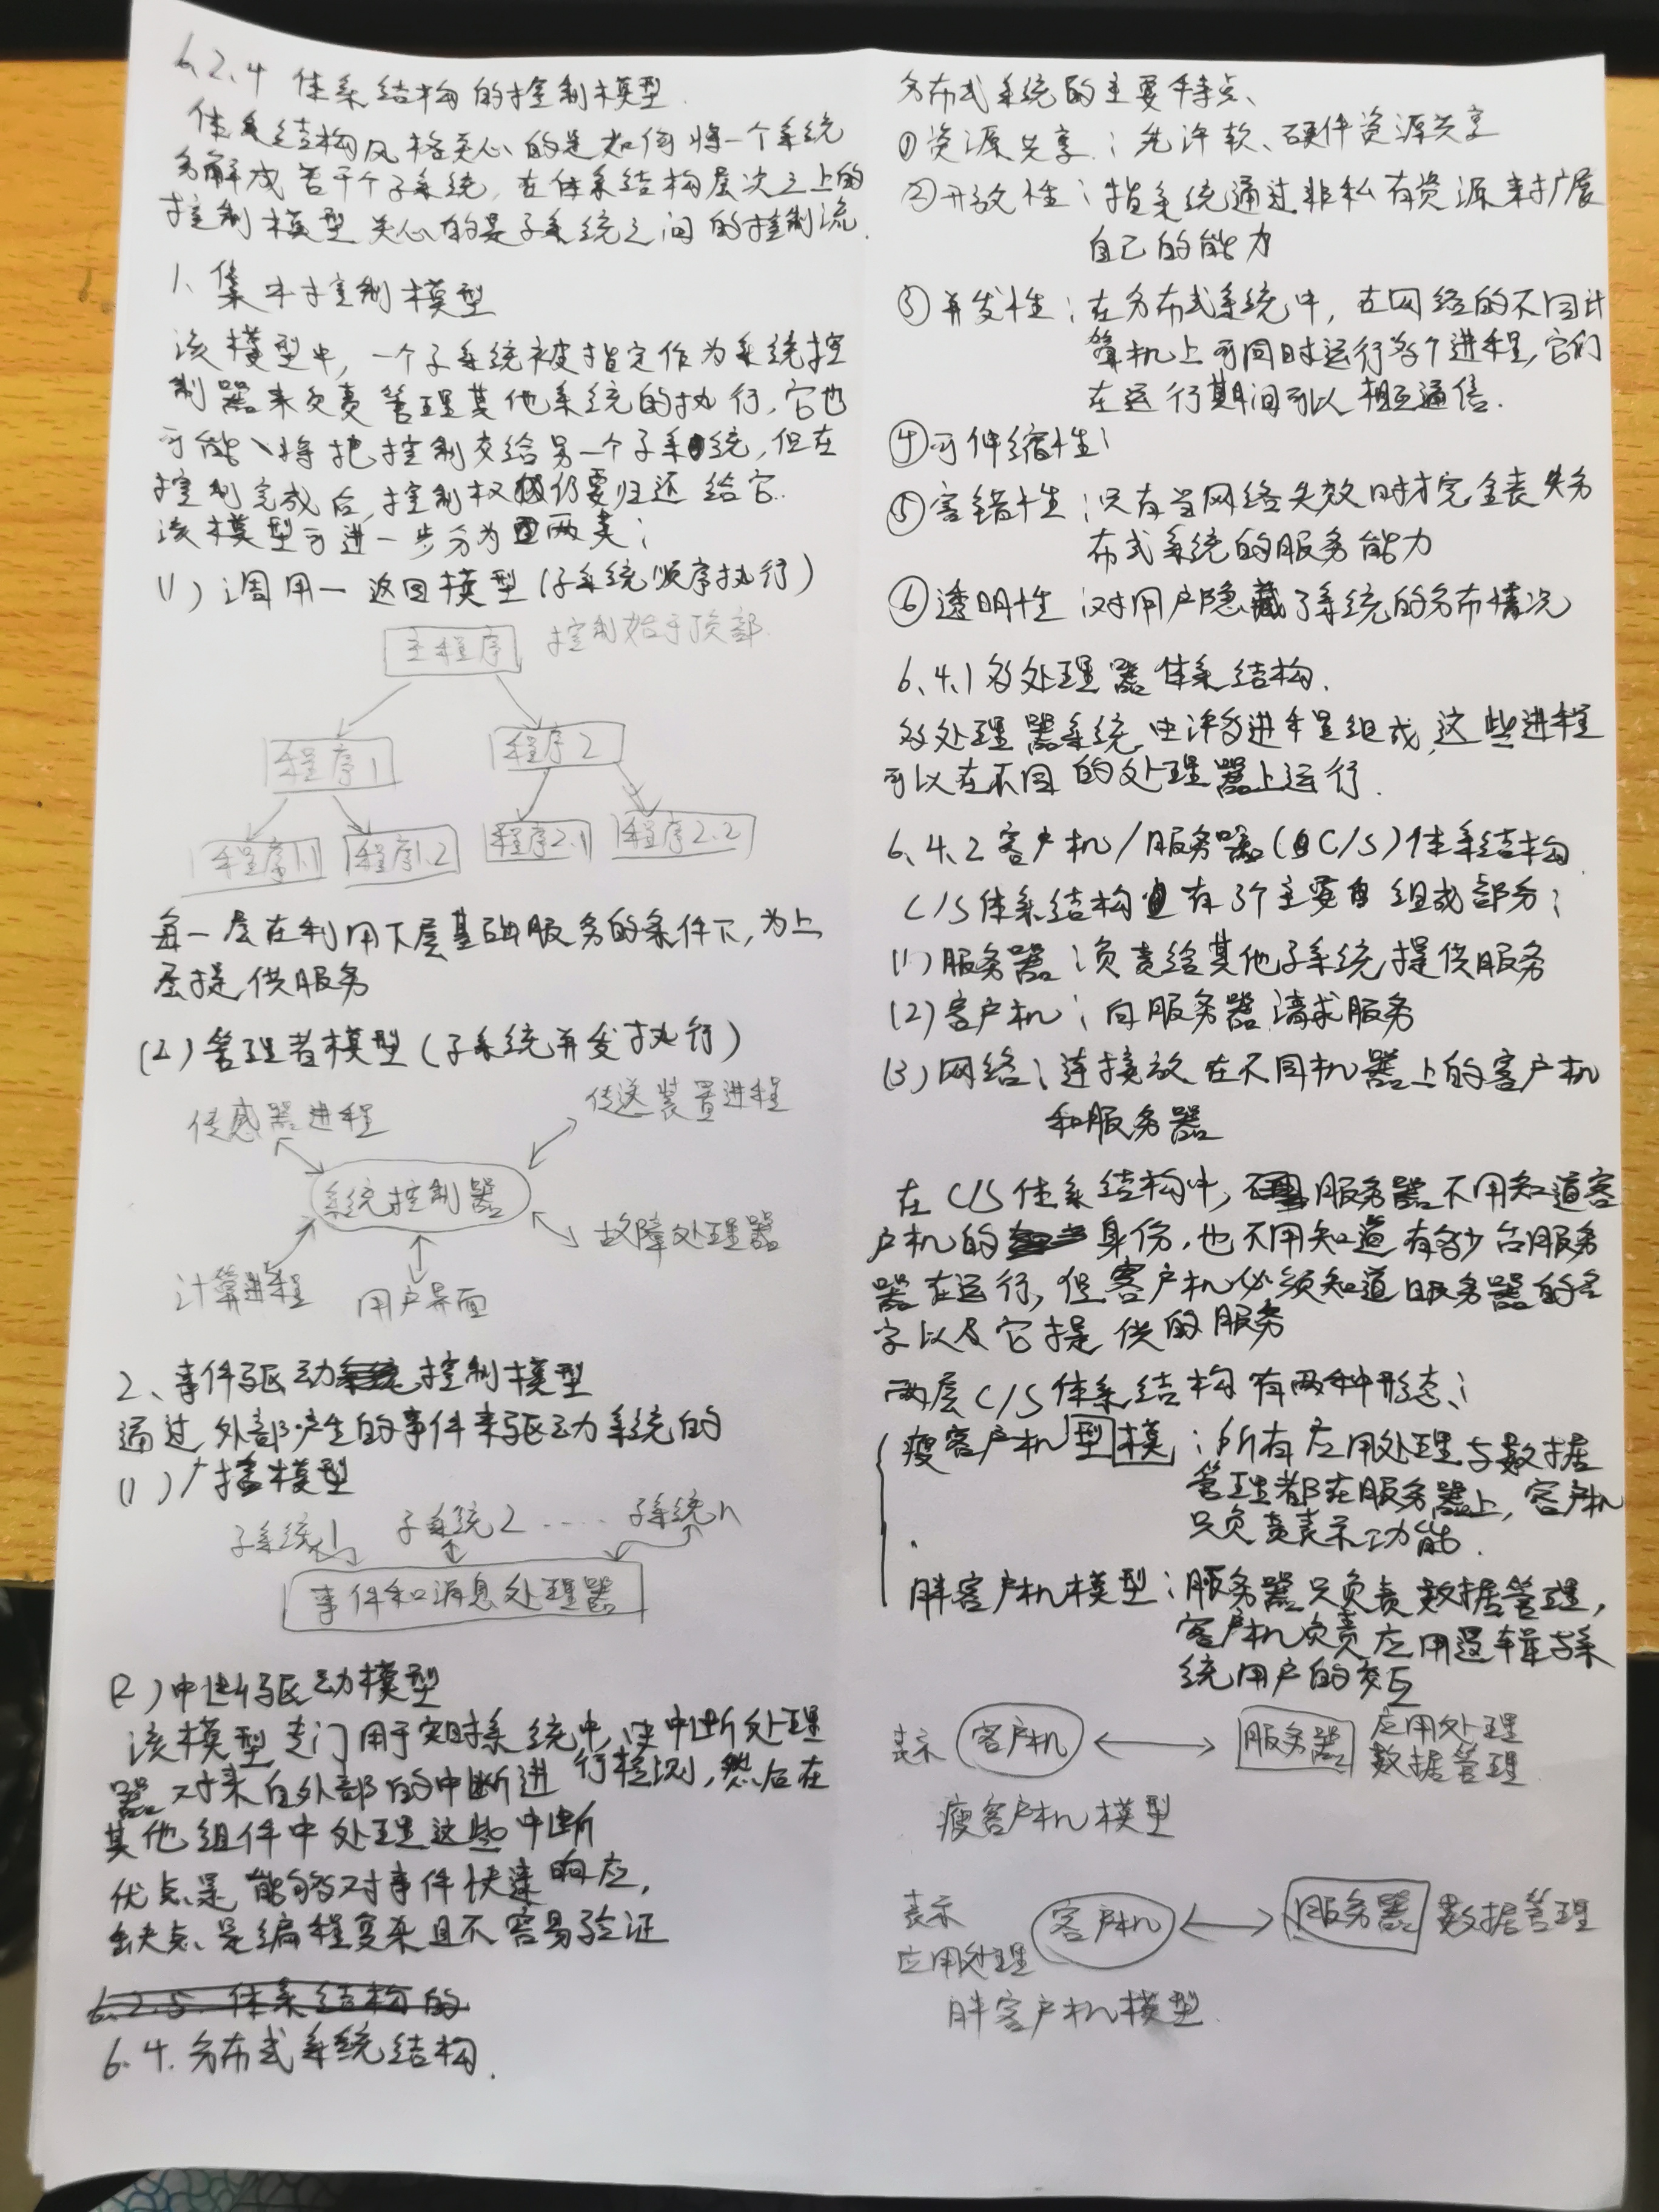 6.2.4 体系结构的控制模型.
体系结构风格关心的是如何将一个系统
分解成若干个子系统, 在体系结构层次之上的
控制模型关心的是子系统之间的控制流.
1、集中控制模型
该模型中, 一个子系统被指定作为系统控
制器来负责管理其他系统的执行, 它也
可能将把控制交给另一个子系统, 但在
控制完成后, 控制权仍要归还给它.
该模型可进一步分为两类:
(1) 调用一返回模型 (子系统顺序执行)
主程序 控制始于顶部.
程序1 程序2
程序1.1 程序1.2 程序2.1 程序2.2
每一层在利用下层基础服务的条件下, 为上
层提供服务
(2) 管理者模型 (子系统并发执行)
传感器进程 传送装置进程
系统控制器
计算进程 用户界面 故障处理器
2、事件驱动控制模型
通过外部产生的事件来驱动系统的
(1) 广播模型
子系统1 子系统2 .... 子系统n
事件和消息处理器
(2) 中断驱动模型
该模型专门用于实时系统中, 中断处理
器对来自外部的中断进行检测, 然后在
其他组件中处理这些中断
优点是能够对事件快速响应,
缺点是编程复杂且不容易验证
6.2.5 体系结构的
6.4. 分布式系统结构.
分布式系统的主要特点、
①资源共享: 允许软、硬件资源共享
②开放性: 指系统通过非私有资源来扩展
自己的能力
③并发性: 在分布式系统中, 在网络的不同计
算机上可同时运行多个进程, 它们
在运行期间可以相互通信.
④可伸缩性:
⑤容错性: 只有当网络失效时才完全丧失分
布式系统的服务能力
⑥透明性: 对用户隐藏了系统的分布情况
6.4.1 多处理器体系结构.
多处理器系统由许多进程组成, 这些进程
可以在不同的处理器上运行.
6.4.2 客户机/服务器 (C/S) 体系结构.
C/S体系结构有3个主要组成部分:
(1) 服务器: 负责给其他子系统提供服务
(2) 客户机: 向服务器请求服务
(3) 网络: 连接放在不同机器上的客户机
和服务器
在C/S体系结构中, 服务器不用知道客
户机的身份, 也不用知道有多少台服务
器在运行, 但客户机必须知道服务器的名
字以及它提供的服务
两层C/S体系结构有两种形态:
瘦客户机型模: 所有应用处理与数据
管理都在服务器上, 客户机
只负责表示功能.
胖客户机模型: 服务器只负责数据管理,
客户机负责应用逻辑与系
统用户的交互
表示 客户机 服务器 应用处理
数据管理
瘦客户机模型
表示 客户机 服务器 数据管理
应用处理
胖客户机模型.